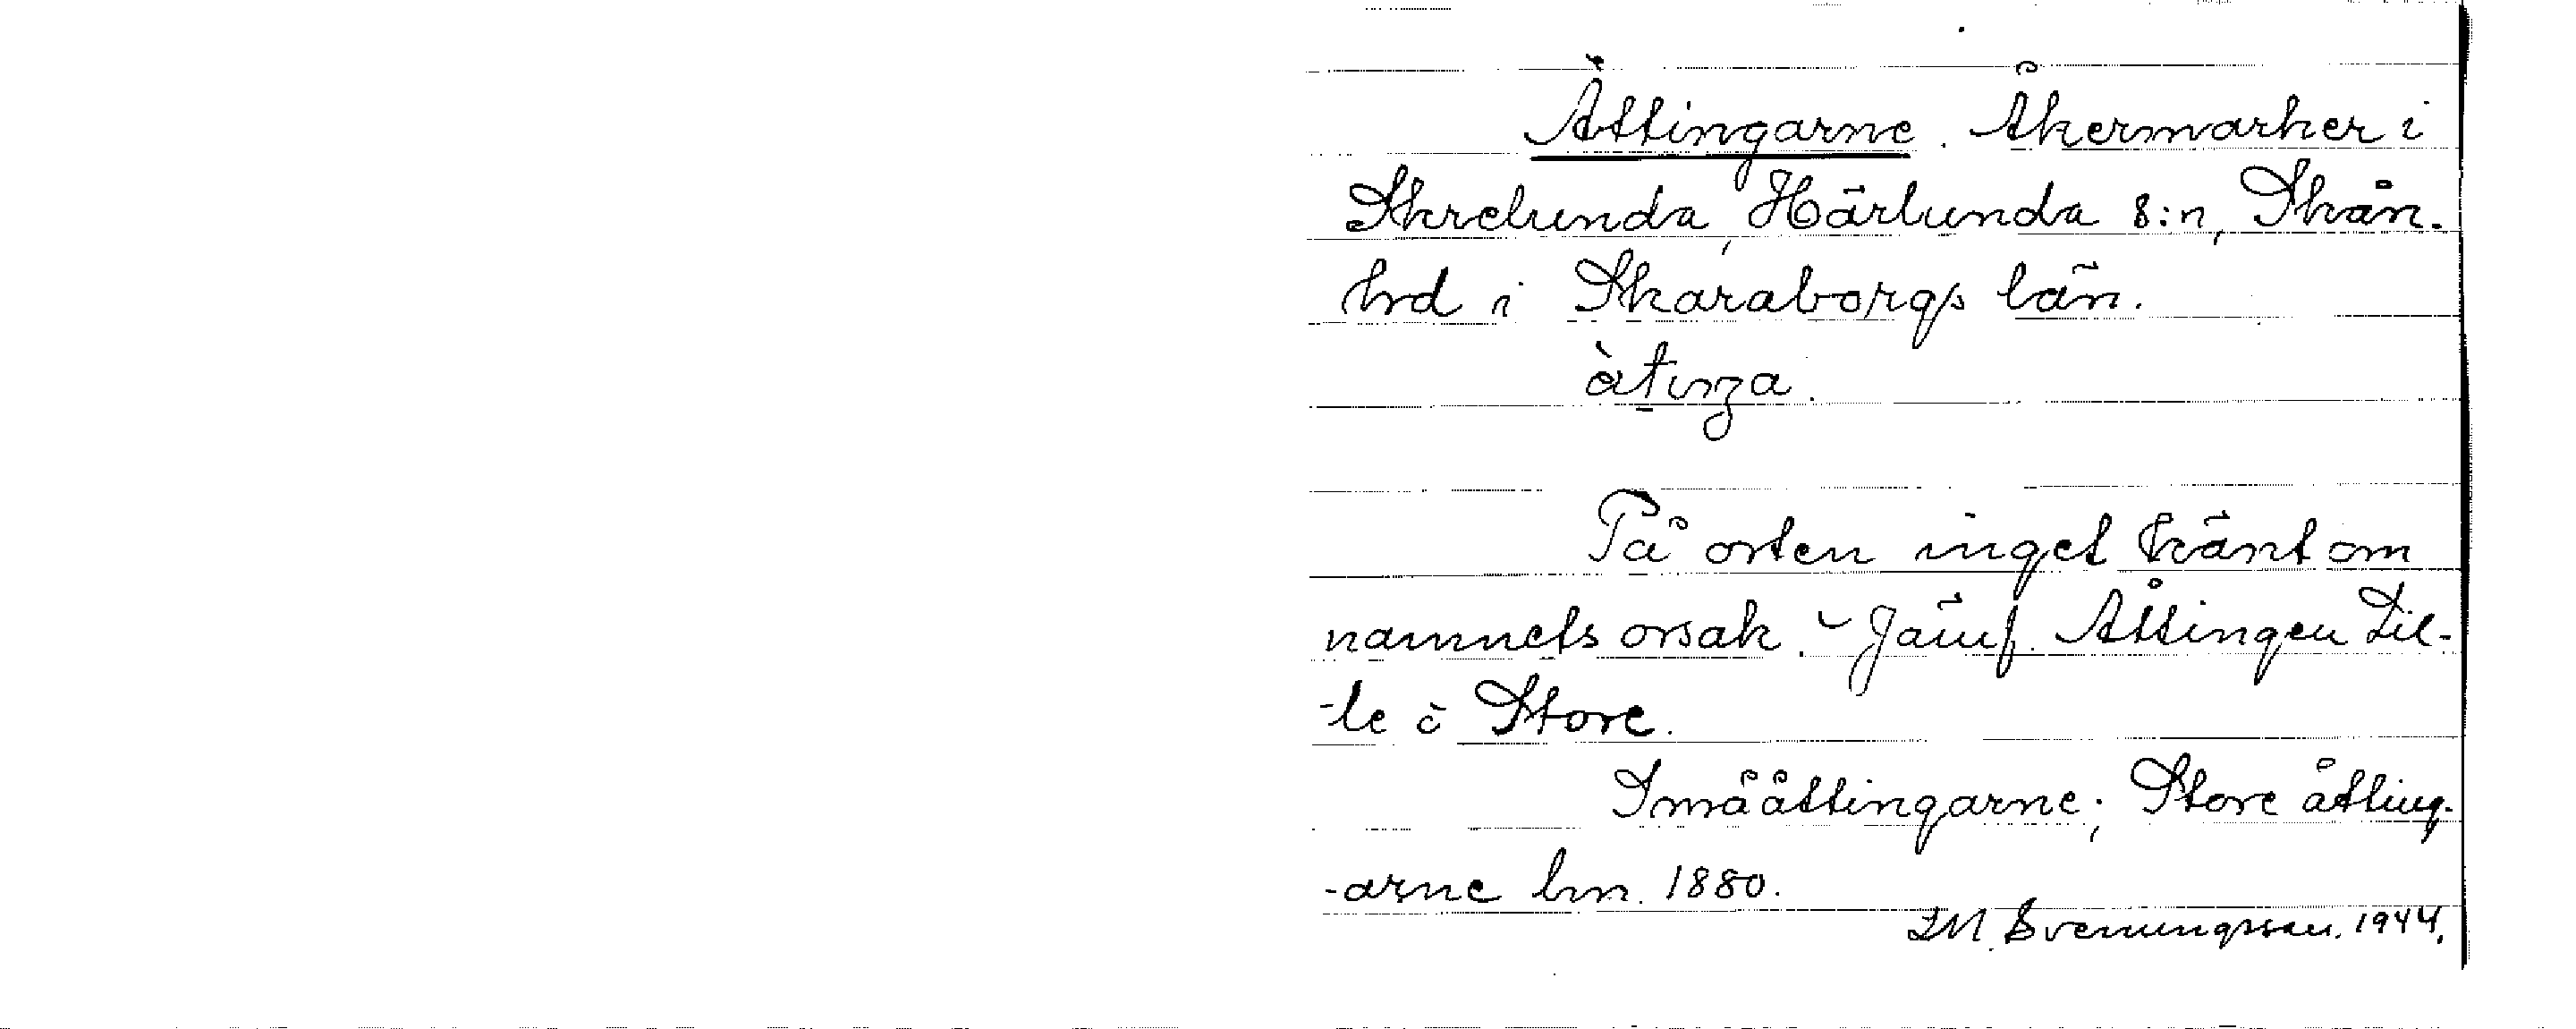 Åttingarne. Åkermarker i
Skrelunda, Härlunda s:n, Skån.
hrd i Skaraborgs län.
àtiŋa.
På orten inget känt om
namnets orsak. - Jämf. Åttingen Lil-
-le å Store.
Småättingarne; Store åtting-
-arne lm. 1880.
I.M. Svenungsson. 1944.